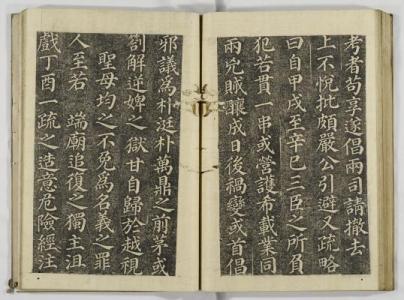 考者苟享遂倡兩司請撤去
上不悅批頗嚴公引避又疏略
曰自甲戌至辛巳三臣之所負
犯若貫一串或營護希載業同
兩兇賊釀成日後禍變或首倡
邪議爲朴涏朴萬鼎之前茅或
劄解逆婢之獄甘自歸於越視
聖母均之不免爲名義之罪
人至若 端廟追復之獨主沮
戲丁酉一疏之造意危險經注